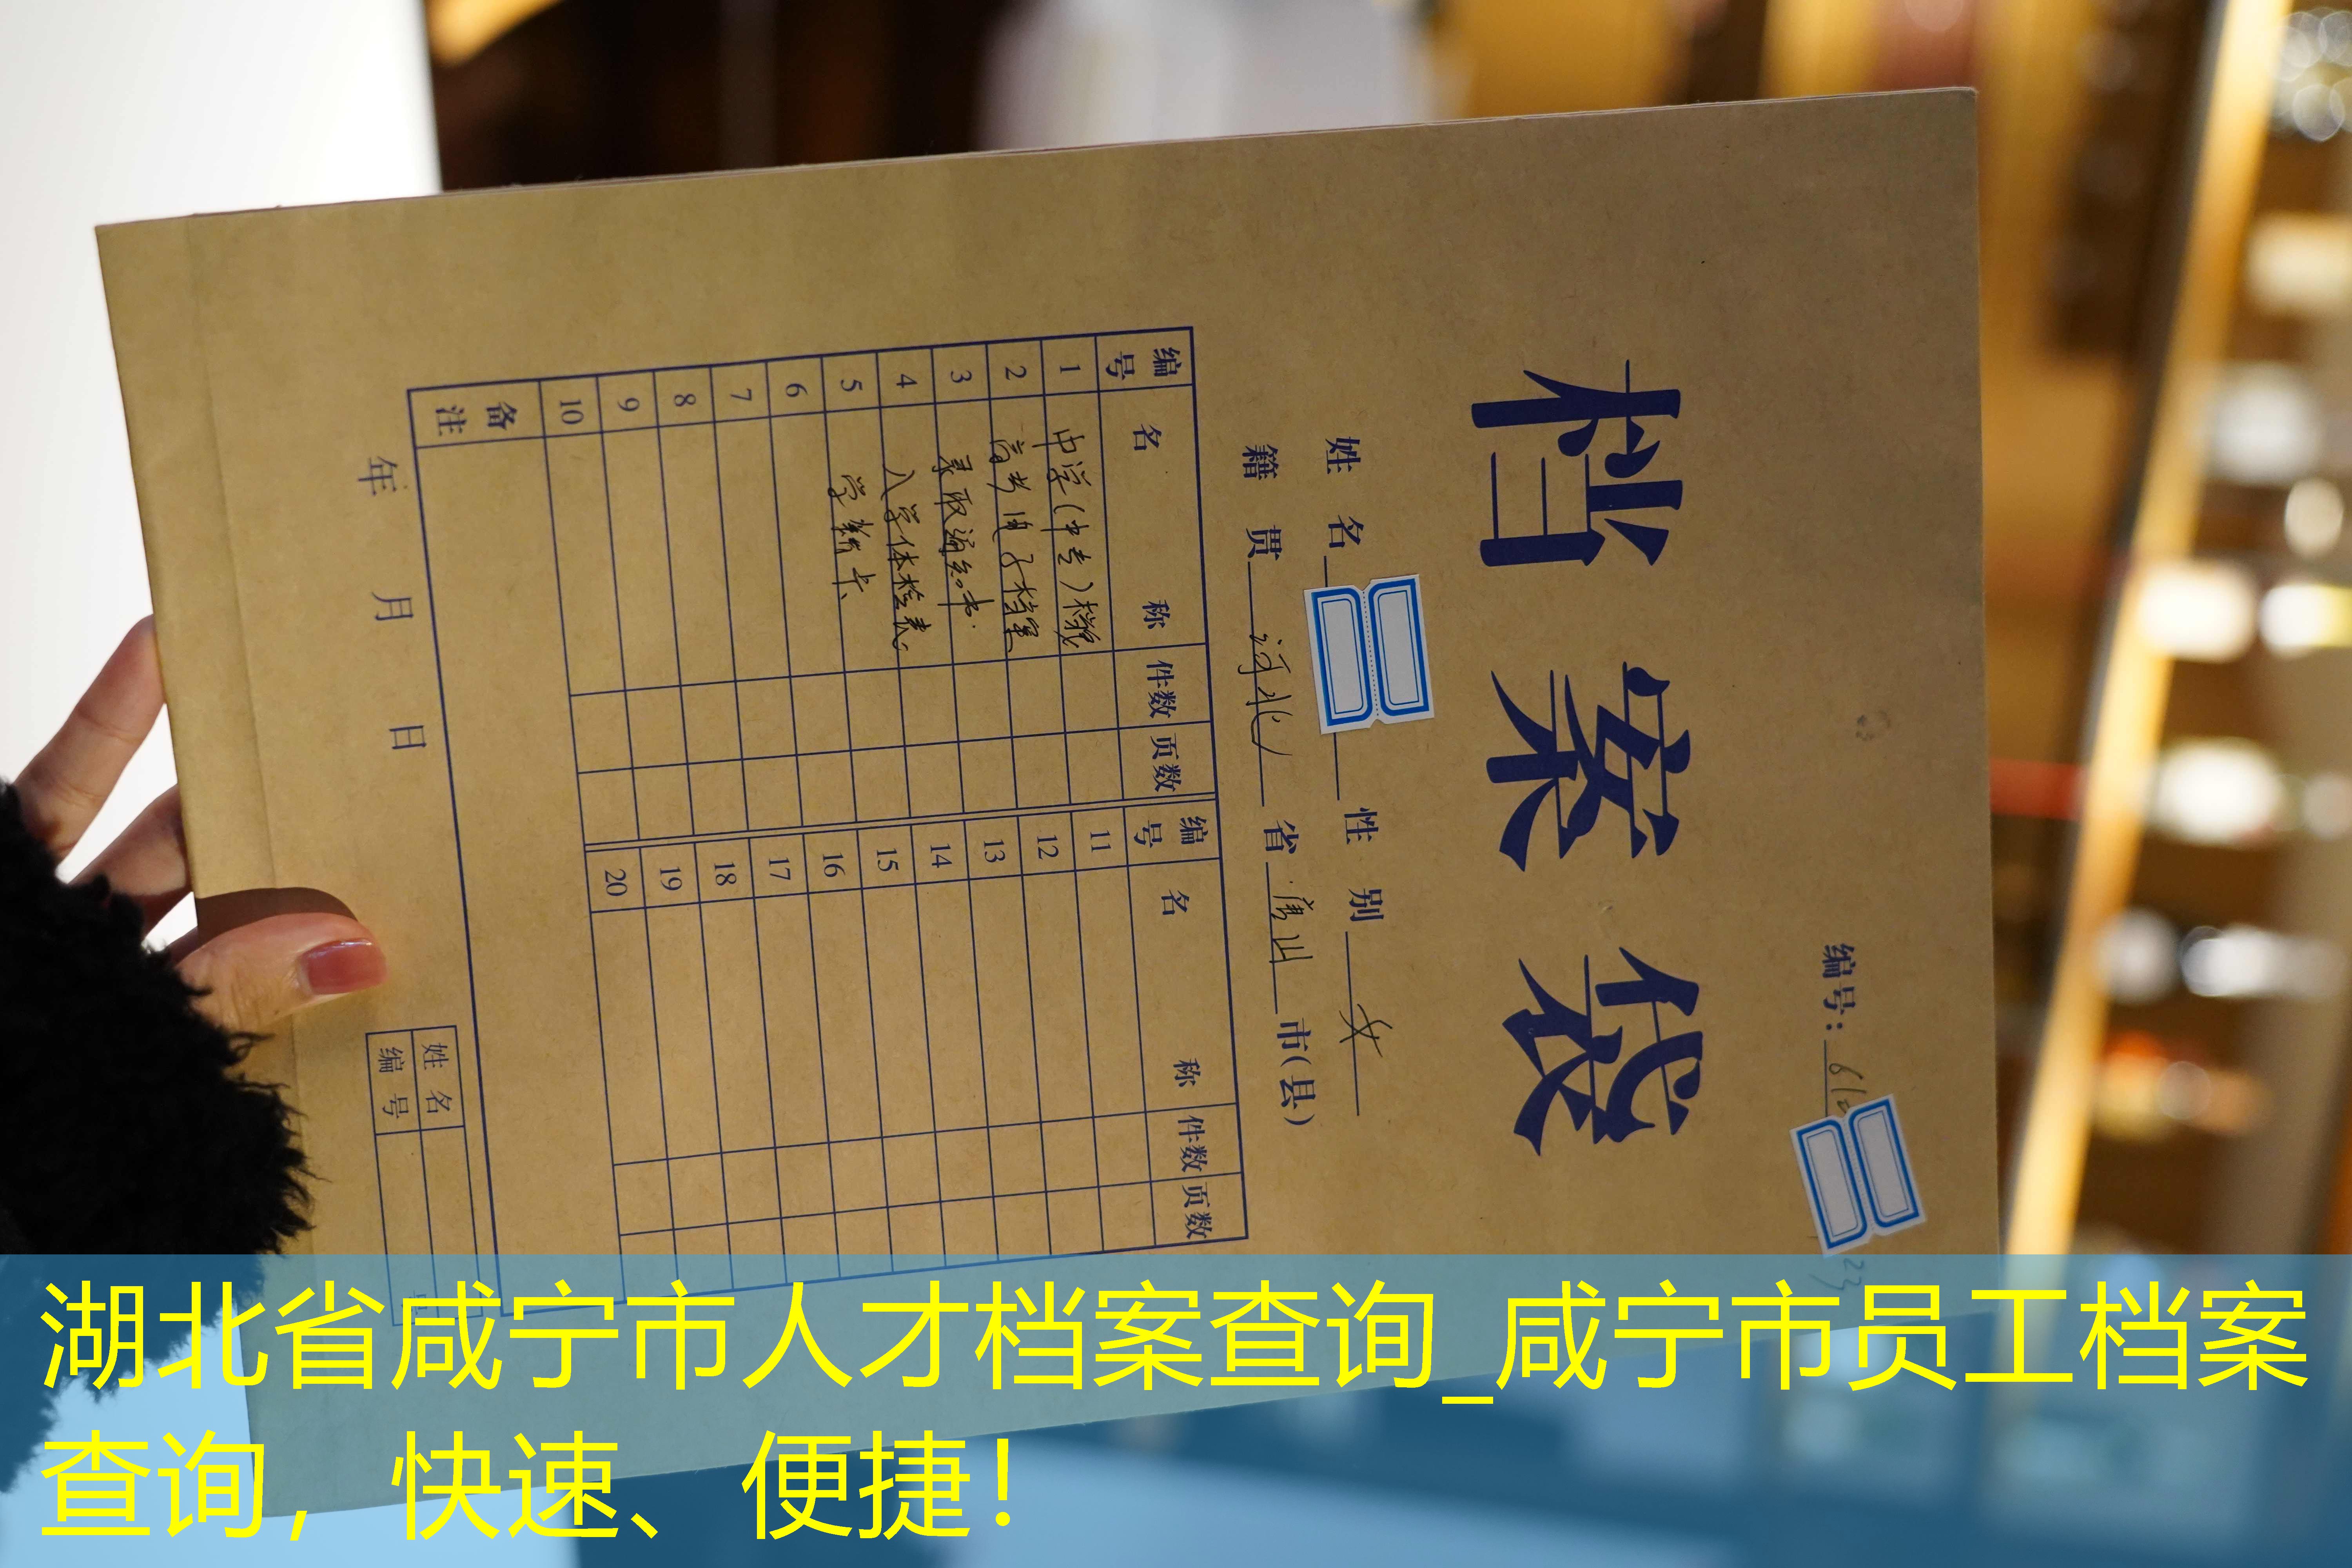 编号：
档案袋
姓名 性别 女
籍贯 河北 省 唐山 市(县)
编号 名称 件数 页数 编号 名称 件数 页数
1 中学(中专)档案 11
2 高考电子档案 12
3 录取通知书 13
4 入学体检表 14
5 学籍卡 15
6 16
7 17
8 18
9 19
10 20
备注
年 月 日
姓名
编号
湖北省咸宁市人才档案查询_咸宁市员工档案
查询，快速、便捷！